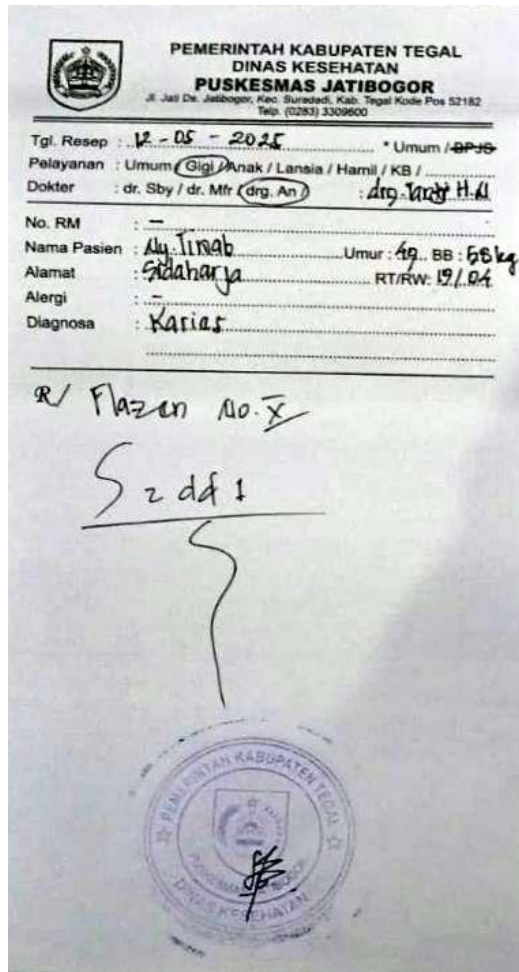 PEMERINTAH KABUPATEN TEGAL
DINAS KESEHATAN
PUSKESMAS JATIBOGOR
Jl. Jati Ds. Jatibogor, Kec. Suradadi, Kab. Tegal Kode Pos 52182
Telp. (0283) 3309600
Tgl. Resep : 12 - 05 - 2025 * Umum / BPJS
Pelayanan : Umum / Gigi / Anak / Lansia / Hamil / KB /
Dokter : dr. Sby / dr. Mfr / drg. An / : drg. H.
No. RM : -
Nama Pasien : Ny. Umur : 49 BB : 58 kg
Alamat : Sidaharja RT/RW: 19/04
Alergi : -
Diagnosa : Karies
R/ Flazen No. X
S 2 dd 1
PEMERINTAH KABUPATEN TEGAL
DINAS KESEHATAN